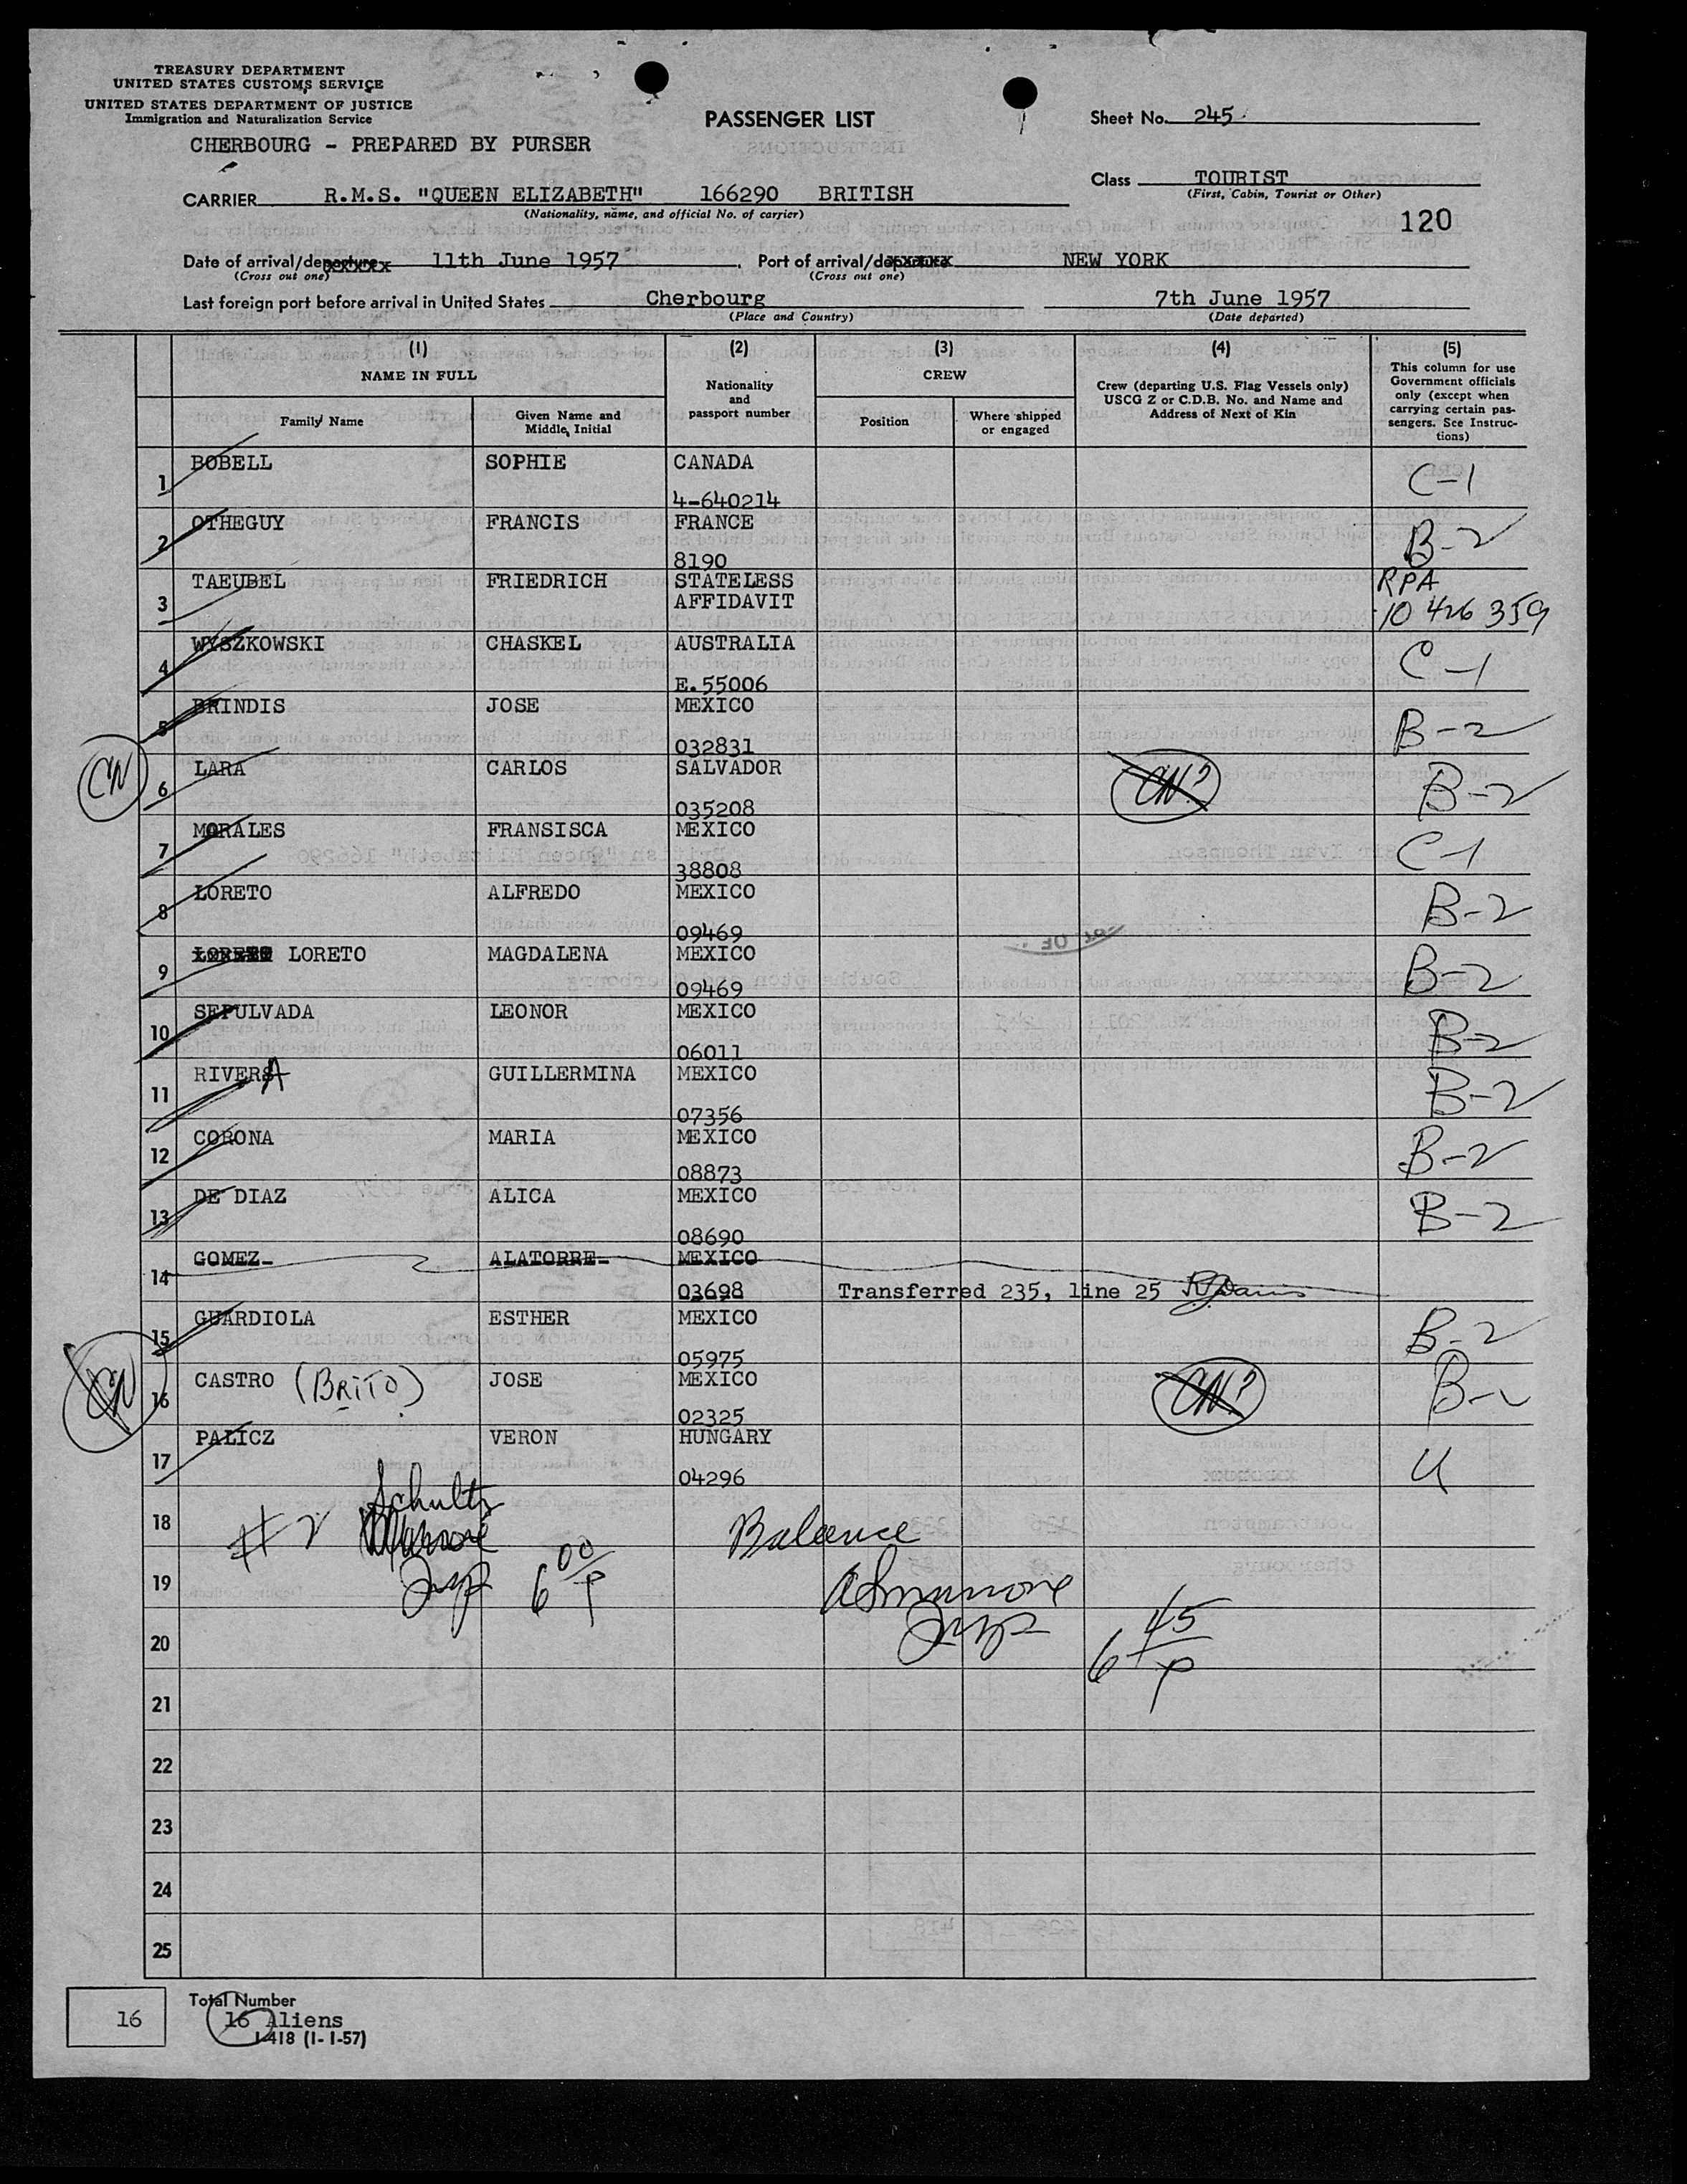 TREASURY DEPARTMENT
UNITED STATES CUSTOMS SERVICE
UNITED STATES DEPARTMENT OF JUSTICE
Immigration and Naturalization Service
CHERBOURG - PREPARED BY PURSER
PASSENGER LIST
Sheet No. 245
Class TOURIST
(First, Cabin, Tourist or Other)
120
CARRIER R.M.S. "QUEEN ELIZABETH" 166290 BRITISH
(Nationality, name, and official No. of carrier)
Date of arrival/departure 11th June 1957. Port of arrival/departure NEW YORK
(Cross out one) (Cross out one)
Last foreign port before arrival in United States Cherbourg 7th June 1957
(Place and Country) (Date departed)
(1) NAME IN FULL
Family Name
Given Name and Middle Initial
(2) Nationality and passport number
(3) CREW
Position
Where shipped or engaged
(4) Crew (departing U.S. Flag Vessels only) USCG Z or C.D.B. No. and Name and Address of Next of Kin
(5) This column for use Government officials only (except when carrying certain passengers. See Instructions)
1 BOBELL SOPHIE CANADA C-1
4-640214
2 OTHEGUY FRANCIS FRANCE B-2
8190
3 TAEUBEL FRIEDRICH STATELESS RPA
AFFIDAVIT 10 426 359
4 WYSZKOWSKI CHASKEL AUSTRALIA C-1
E.55006
5 BRINDIS JOSE MEXICO B-2
032831
CN 6 LARA CARLOS SALVADOR CN? B-2
035208
7 MORALES FRANSISCA MEXICO C-1
38808
8 LORETO ALFREDO MEXICO B-2
09469
9 LORETO MAGDALENA MEXICO B-2
09469
10 SEPULVADA LEONOR MEXICO B-2
06011
11 RIVERA GUILLERMINA MEXICO B-2
07356
12 CORONA MARIA MEXICO B-2
08873
13 DE DIAZ ALICA MEXICO B-2
08690
14 GOMEZ ALATORRE MEXICO
03698 Transferred 235, line 25
15 GUARDIOLA ESTHER MEXICO B-2
05975
CN 16 CASTRO (BRITO) JOSE MEXICO CN? B-2
02325
17 PALICZ VERON HUNGARY
04296
18 #2 Schultz Balance
19 Insp 6 00/P
20 Insp 6 45/P
21
22
23
24
25
16
Total Number
16 Aliens
I-418 (1-1-57)